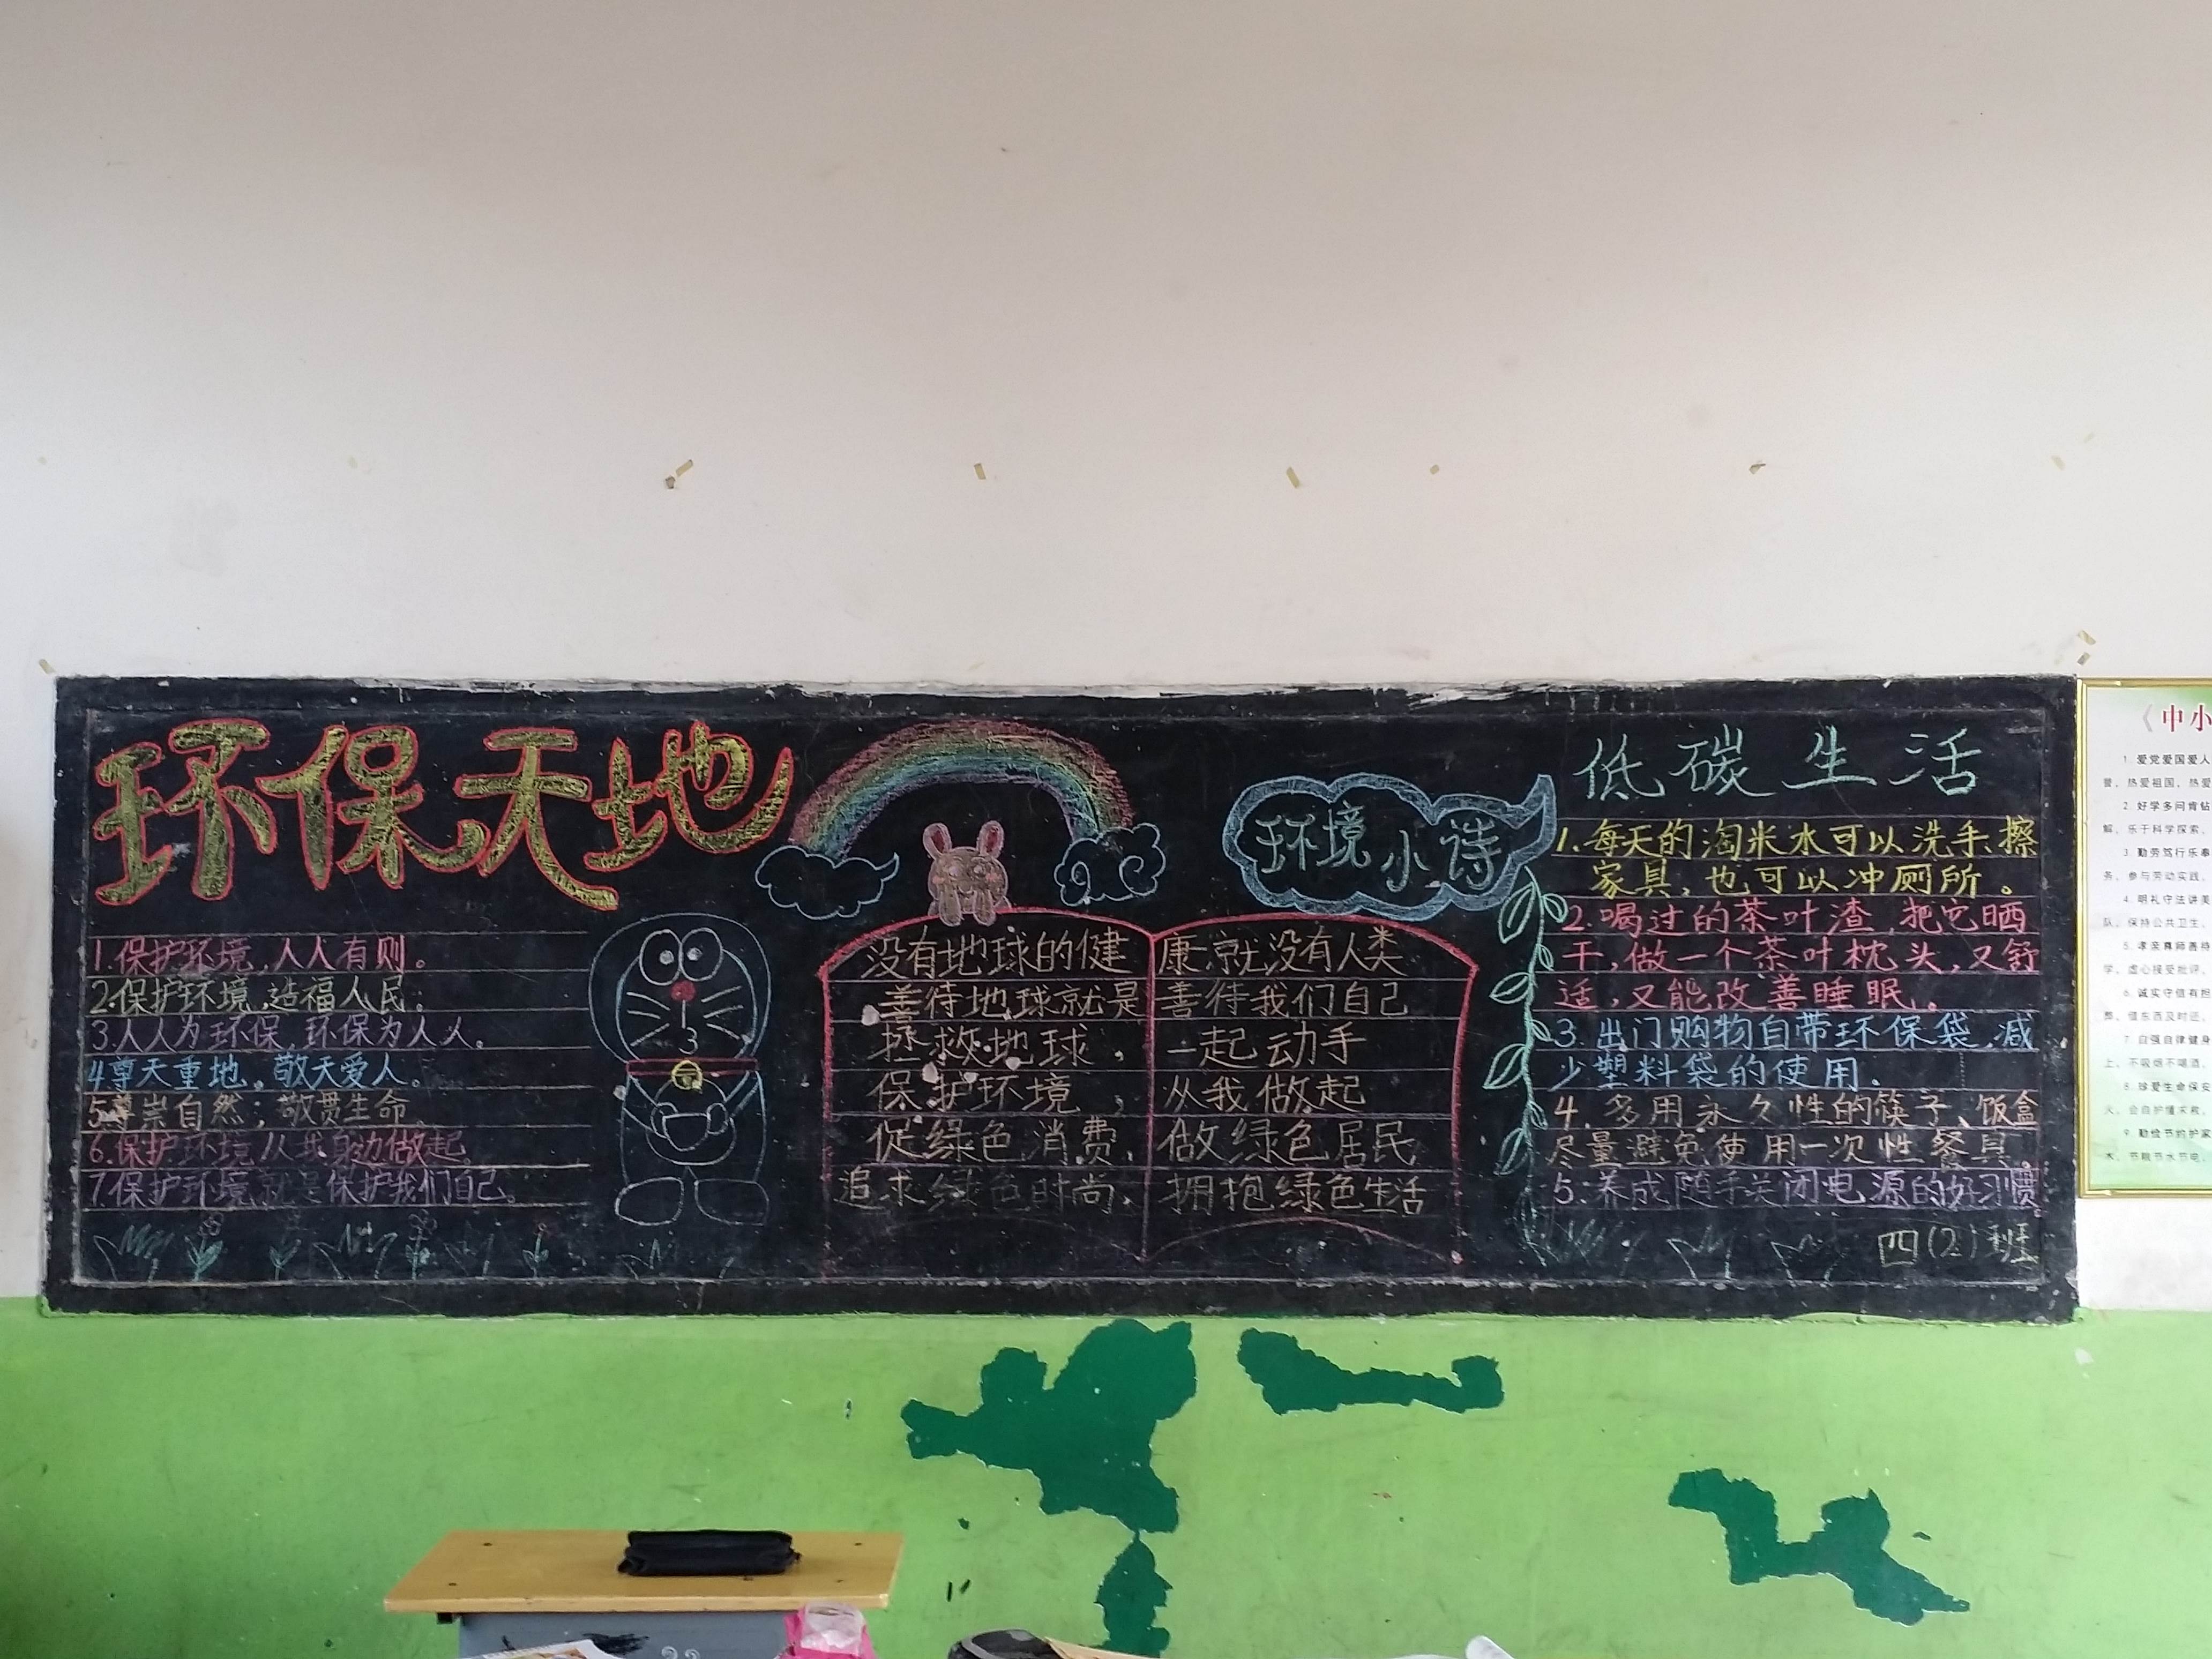 环保天地
1.保护环境,人人有则。
2.保护环境,造福人民。
3.人人为环保,环保为人人。
4尊天重地。敬天爱人。
5尊崇自然;敬贯生命
6.保护环境,从我身边做起。
7.保护环境就是保护我们自己。
环境小诗
没有地球的健康就没有人类
善待地球就是善待我们自己
拯救地球,一起动手
保护环境,从我做起
促绿色消费,做绿色居民
追求绿色时尚,拥抱绿色生活
低碳生活
1.每天的淘米水可以洗手擦
家具,也可以冲厕所。
2.喝过的茶叶渣,把它晒
干,做一个茶叶枕头,又舒
适,又能改善睡眠。
3.出门购物自带环保袋,减
少塑料袋的使用.
4.多用永久性的筷子、饭盒
尽量避免使用一次性餐具。
5.养成随手关闭电源的好习惯
四(2)班
《中小
1.爱党爱国爱人
誉,热爱祖国,热爱
2.好学多问肯钻
解,乐于科学探索,
3.勤劳笃行乐奉
务,参与劳动实践,
4.明礼守法讲美
队,保持公共卫生,
5.孝亲尊师善待
学,虚心接受批评,
6.诚实守信有担
弊,借东西及时还,
7.自强自律健身
上,不吸烟不喝酒,
8.珍爱生命保安
火,会自护懂求救,
9.勤俭节约护家
木,节粮节水节电,